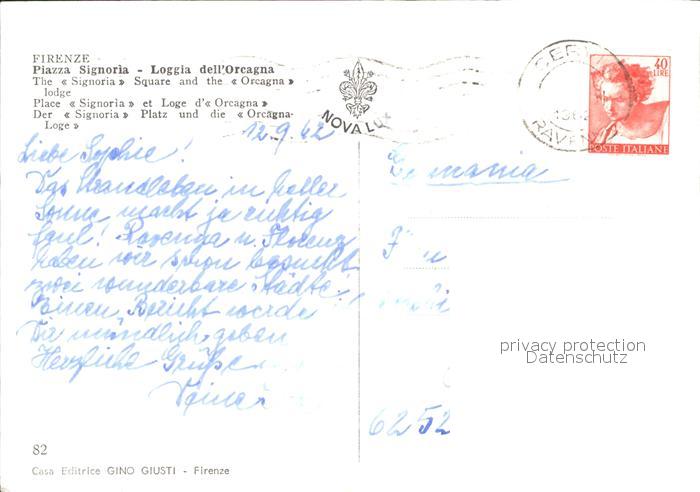 FIRENZE
Piazza Signoria - Loggia dell'Orcagna
The « Signoria » Square and the « Orcagna »
lodge
Place « Signoria » et Loge d'« Orcagna »
Der « Signoria » Platz und die « Orcagna-
Loge »
NOVA LUX
40
LIRE
POSTE ITALIANE
CERV
RAVEN
12.9.62
Liebe Sophie!
Das Strandleben in voller
Sonne macht ja richtig
faul! Ravenna u. Florenz
haben wir schon besucht
zwei wunderbare Städte!
Einen Bericht werde
Dir mündlich geben
Herzliche Grüße
Germania
6252
privacy protection
Datenschutz
82
Casa Editrice GINO GIUSTI - Firenze